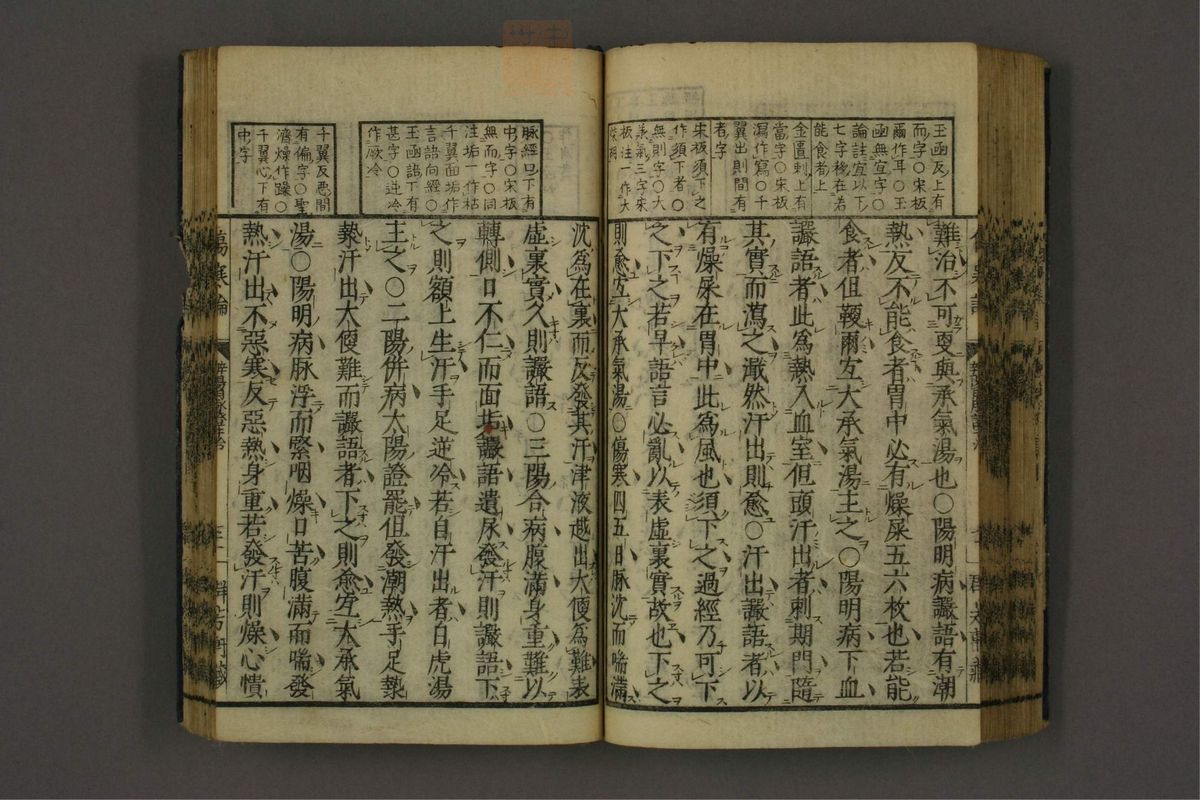 玉函反上有
而字○宋板
爾作耳○玉
函無宜字○
論註宜以下
七字移在若
能食者上
金匱刺上有
當字○宋板
瀉作寫○千
翼出則間有
者字
宋板須下之
作須下者○
無則字○大
承氣三字宋
板注一作大
柴胡
難治不可更與承氣湯也○陽明病讝語有潮
熱反不能食者胃中必有燥屎五六枚也若能
食者但鞕爾宜大承氣湯主之○陽明病下血
讝語者此為熱入血室但頭汗出者刺期門隨
其實而瀉之濈然汗出則愈○汗出讝語者以
有燥屎在胃中此為風也須下之過經乃可下
之下之若早語言必亂以表虛裏實故也下之
則愈宜大承氣湯○傷寒四五日脉沈而喘滿
脉經口下有
中字○宋板
無而字○同
注垢一作枯
千翼面垢作
言語向經○
玉函謵下有
甚字○逆冷
作厥冷
千翼反惡間
有偏字○聖
濟燥作躁○
千翼心下有
中字
沈為在裏而反發其汗津液越出大便為難表
虛裏實久則讝語○三陽合病腹滿身重難以
轉側口不仁而面垢讝語遺尿發汗則讝語下
之則額上生汗手足逆冷若自汗出者白虎湯
主之○二陽併病太陽證罷但發潮熱手足漐
漐汗出大便難而讝語者下之則愈宜大承氣
湯○陽明病脉浮而緊咽燥口苦腹滿而喘發
熱汗出不惡寒反惡熱身重若發汗則燥心憒
傷寒論